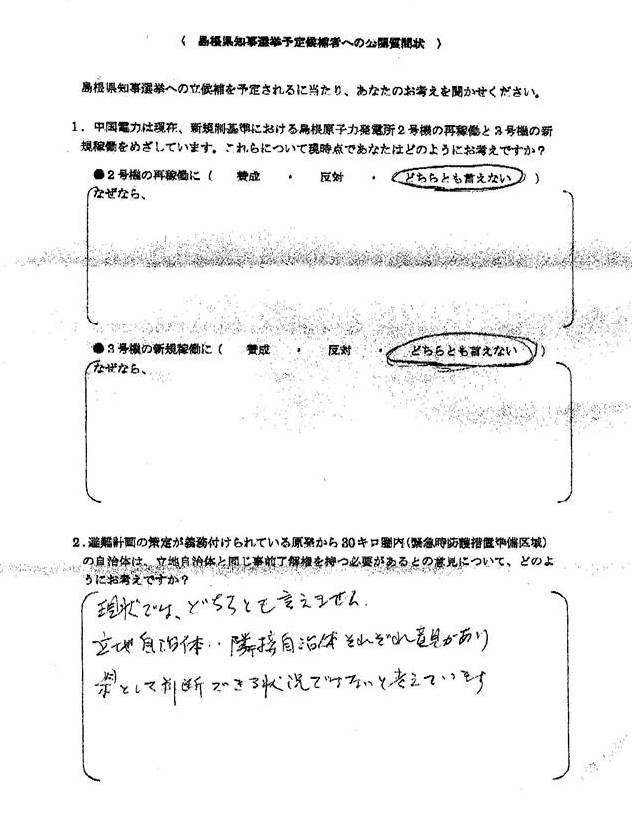 〈 島根県知事選挙予定候補者への公開質問状 〉
島根県知事選挙への立候補を予定されるに当たり、あなたのお考えを聞かせください。
1．中国電力は現在、新規制基準における島根原子力発電所２号機の再稼働と３号機の新
規稼働をめざしています。これらについて現時点であなたはどのようにお考えですか？
●２号機の再稼働に（ 賛成 ・ 反対 ・ どちらとも言えない ）
なぜなら、
●３号機の新規稼働に（ 賛成 ・ 反対 ・ どちらとも言えない ）
なぜなら、
2．避難計画の策定が義務付けられている原発から30キロ圏内(緊急時防護措置準備区域)
の自治体は、立地自治体と同じ事前了解権を持つ必要があるとの意見について、どのよ
うにお考えですか？
現状では、どちらとも言えません.
立地自治体‥隣接自治体それぞれ意見があり
として判断できる状況ではないと考えています